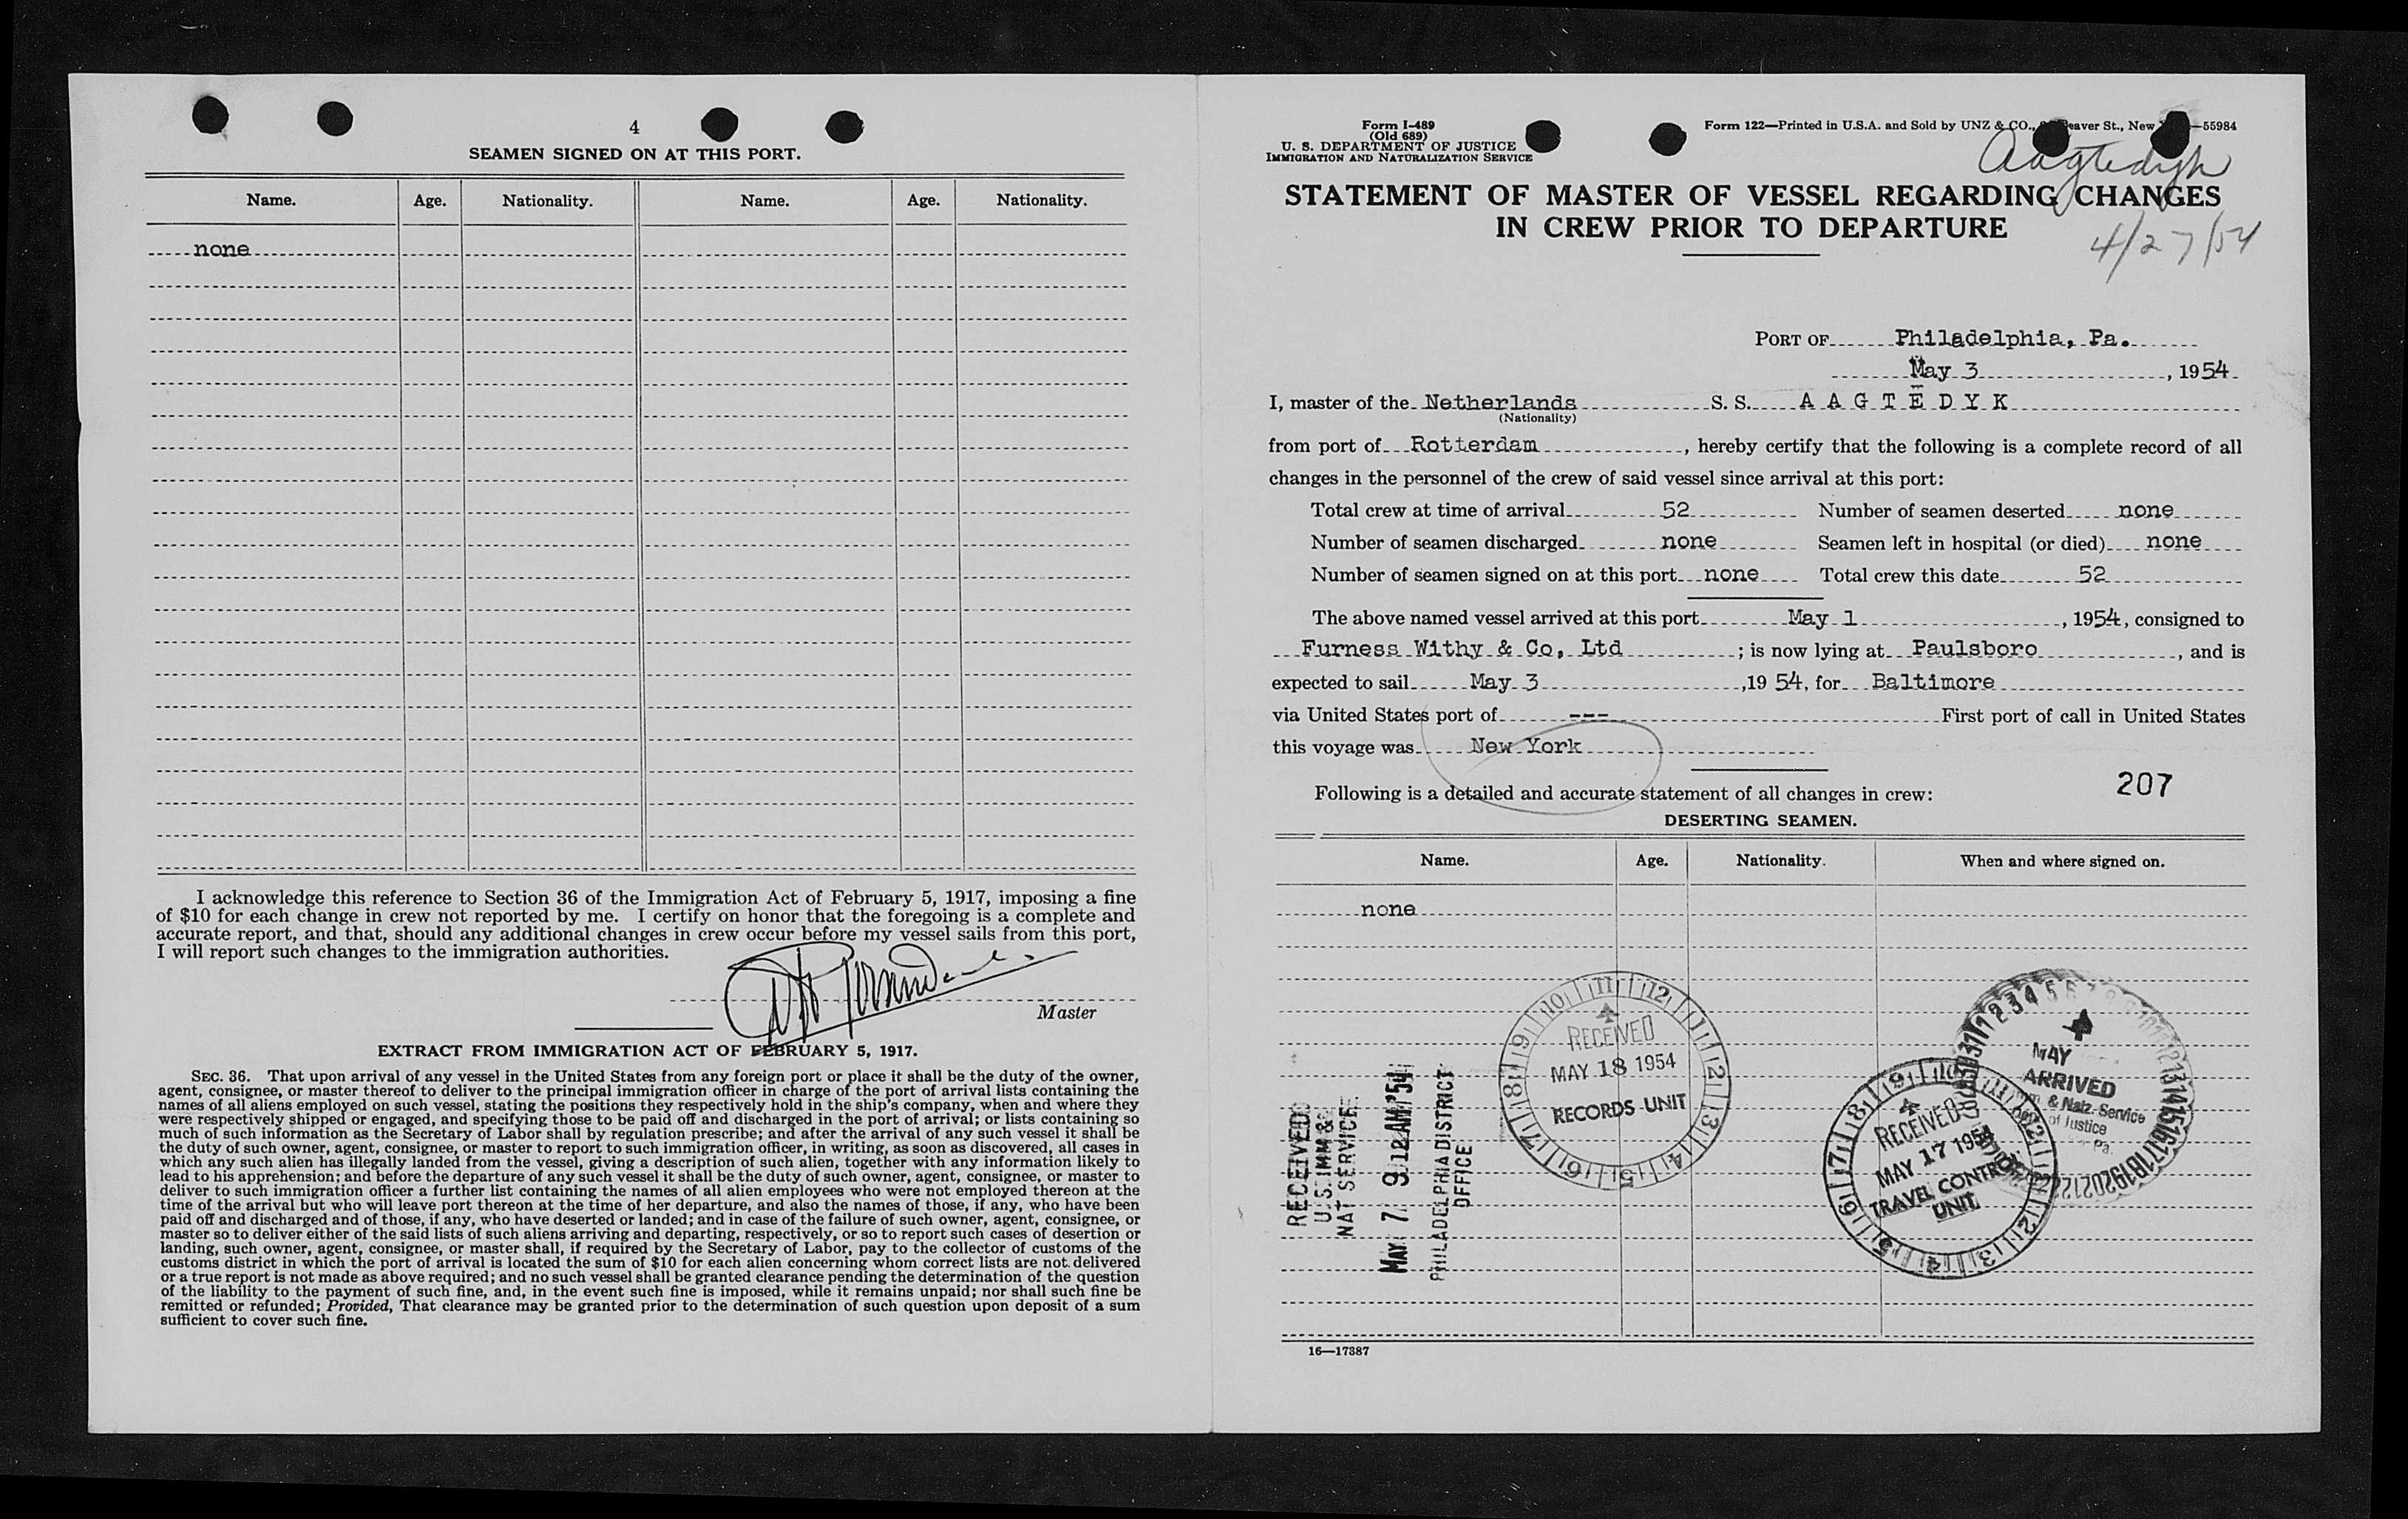 4
SEAMEN SIGNED ON AT THIS PORT.
Name. Age. Nationality. Name. Age. Nationality.
none
I acknowledge this reference to Section 36 of the Immigration Act of February 5, 1917, imposing a fine
of $10 for each change in crew not reported by me. I certify on honor that the foregoing is a complete and
accurate report, and that, should any additional changes in crew occur before my vessel sails from this port,
I will report such changes to the immigration authorities.
Master
EXTRACT FROM IMMIGRATION ACT OF FEBRUARY 5, 1917.
SEC. 36. That upon arrival of any vessel in the United States from any foreign port or place it shall be the duty of the owner,
agent, consignee, or master thereof to deliver to the principal immigration officer in charge of the port of arrival lists containing the
names of all aliens employed on such vessel, stating the positions they respectively hold in the ship's company, when and where they
were respectively shipped or engaged, and specifying those to be paid off and discharged in the port of arrival; or lists containing so
much of such information as the Secretary of Labor shall by regulation prescribe; and after the arrival of any such vessel it shall be
the duty of such owner, agent, consignee, or master to report to such immigration officer, in writing, as soon as discovered, all cases in
which any such alien has illegally landed from the vessel, giving a description of such alien, together with any information likely to
lead to his apprehension; and before the departure of any such vessel it shall be the duty of such owner, agent, consignee, or master to
deliver to such immigration officer a further list containing the names of all alien employees who were not employed thereon at the
time of the arrival but who will leave port thereon at the time of her departure, and also the names of those, if any, who have been
paid off and discharged and of those, if any, who have deserted or landed; and in case of the failure of such owner, agent, consignee, or
master so to deliver either of the said lists of such aliens arriving and departing, respectively, or so to report such cases of desertion or
landing, such owner, agent, consignee, or master shall, if required by the Secretary of Labor, pay to the collector of customs of the
customs district in which the port of arrival is located the sum of $10 for each alien concerning whom correct lists are not delivered
or a true report is not made as above required; and no such vessel shall be granted clearance pending the determination of the question
of the liability to the payment of such fine, and, in the event such fine is imposed, while it remains unpaid; nor shall such fine be
remitted or refunded; Provided, That clearance may be granted prior to the determination of such question upon deposit of a sum
sufficient to cover such fine.
Form I-489
(Old 689)
U. S. DEPARTMENT OF JUSTICE
IMMIGRATION AND NATURALIZATION SERVICE
Form 122—Printed in U.S.A. and Sold by UNZ & CO., Beaver St., New —55984
Aagtedyk
STATEMENT OF MASTER OF VESSEL REGARDING CHANGES
IN CREW PRIOR TO DEPARTURE
4/27/54
PORT OF Philadelphia, Pa.
May 3, 1954
I, master of the Netherlands S. S. A A G T E D Y K
(Nationality)
from port of Rotterdam, hereby certify that the following is a complete record of all
changes in the personnel of the crew of said vessel since arrival at this port:
Total crew at time of arrival 52 Number of seamen deserted none
Number of seamen discharged none Seamen left in hospital (or died) none
Number of seamen signed on at this port none Total crew this date 52
The above named vessel arrived at this port May 1, 1954, consigned to
Furness Withy & Co, Ltd; is now lying at Paulsboro, and is
expected to sail May 3, 1954, for Baltimore
via United States port of --- First port of call in United States
this voyage was New York
Following is a detailed and accurate statement of all changes in crew:
207
DESERTING SEAMEN.
Name. Age. Nationality. When and where signed on.
none
RECEIVED
U. S. IMM &
NAT SERVICE
MAY 7 9 12 AM '54
PHILADELPHIA DISTRICT
OFFICE
RECEIVED
MAY 18 1954
RECORDS UNIT
RECEIVED
MAY 17 1954
TRAVEL CONTROL
UNIT
MAY
ARRIVED
& Natz. Service
of Justice
Pa.
16—17387